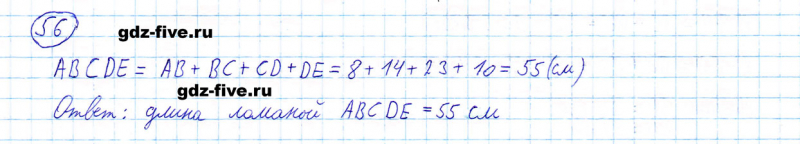 56
gdz-five.ru
ABCDE = AB + BC + CD + DE = 8 + 14 + 23 + 10 = 55 (см)
gdz-five.ru
Ответ: длина ламаной ABCDE = 55 см